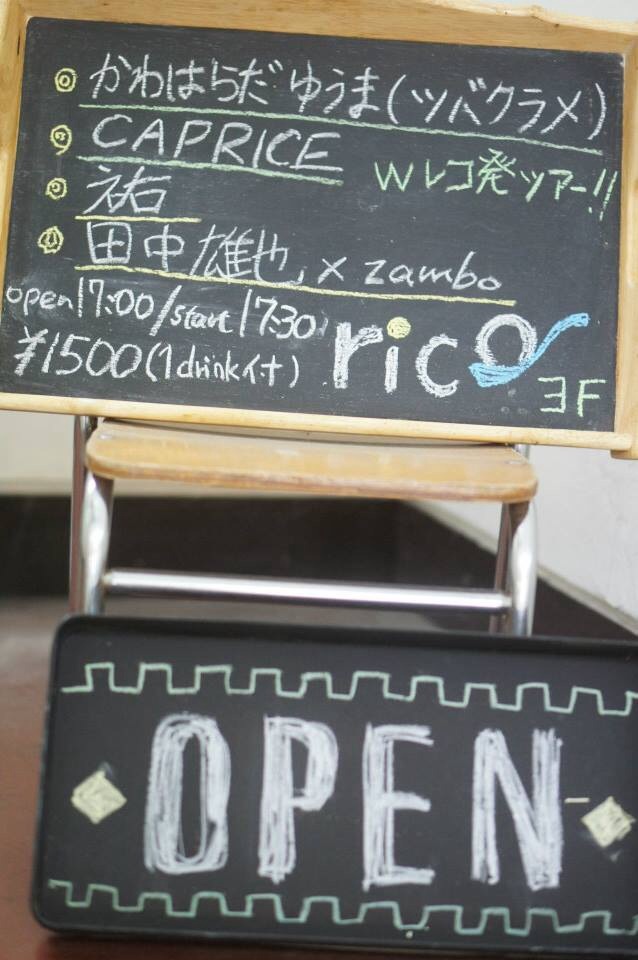 かわはらだゆうま(ツバクラメ)
CAPRICE
Wレコ発ツアー!!
祐
田中雄也 × zambo
open17:00/start17:30
¥1500(1drink付)
rico
3F
OPEN